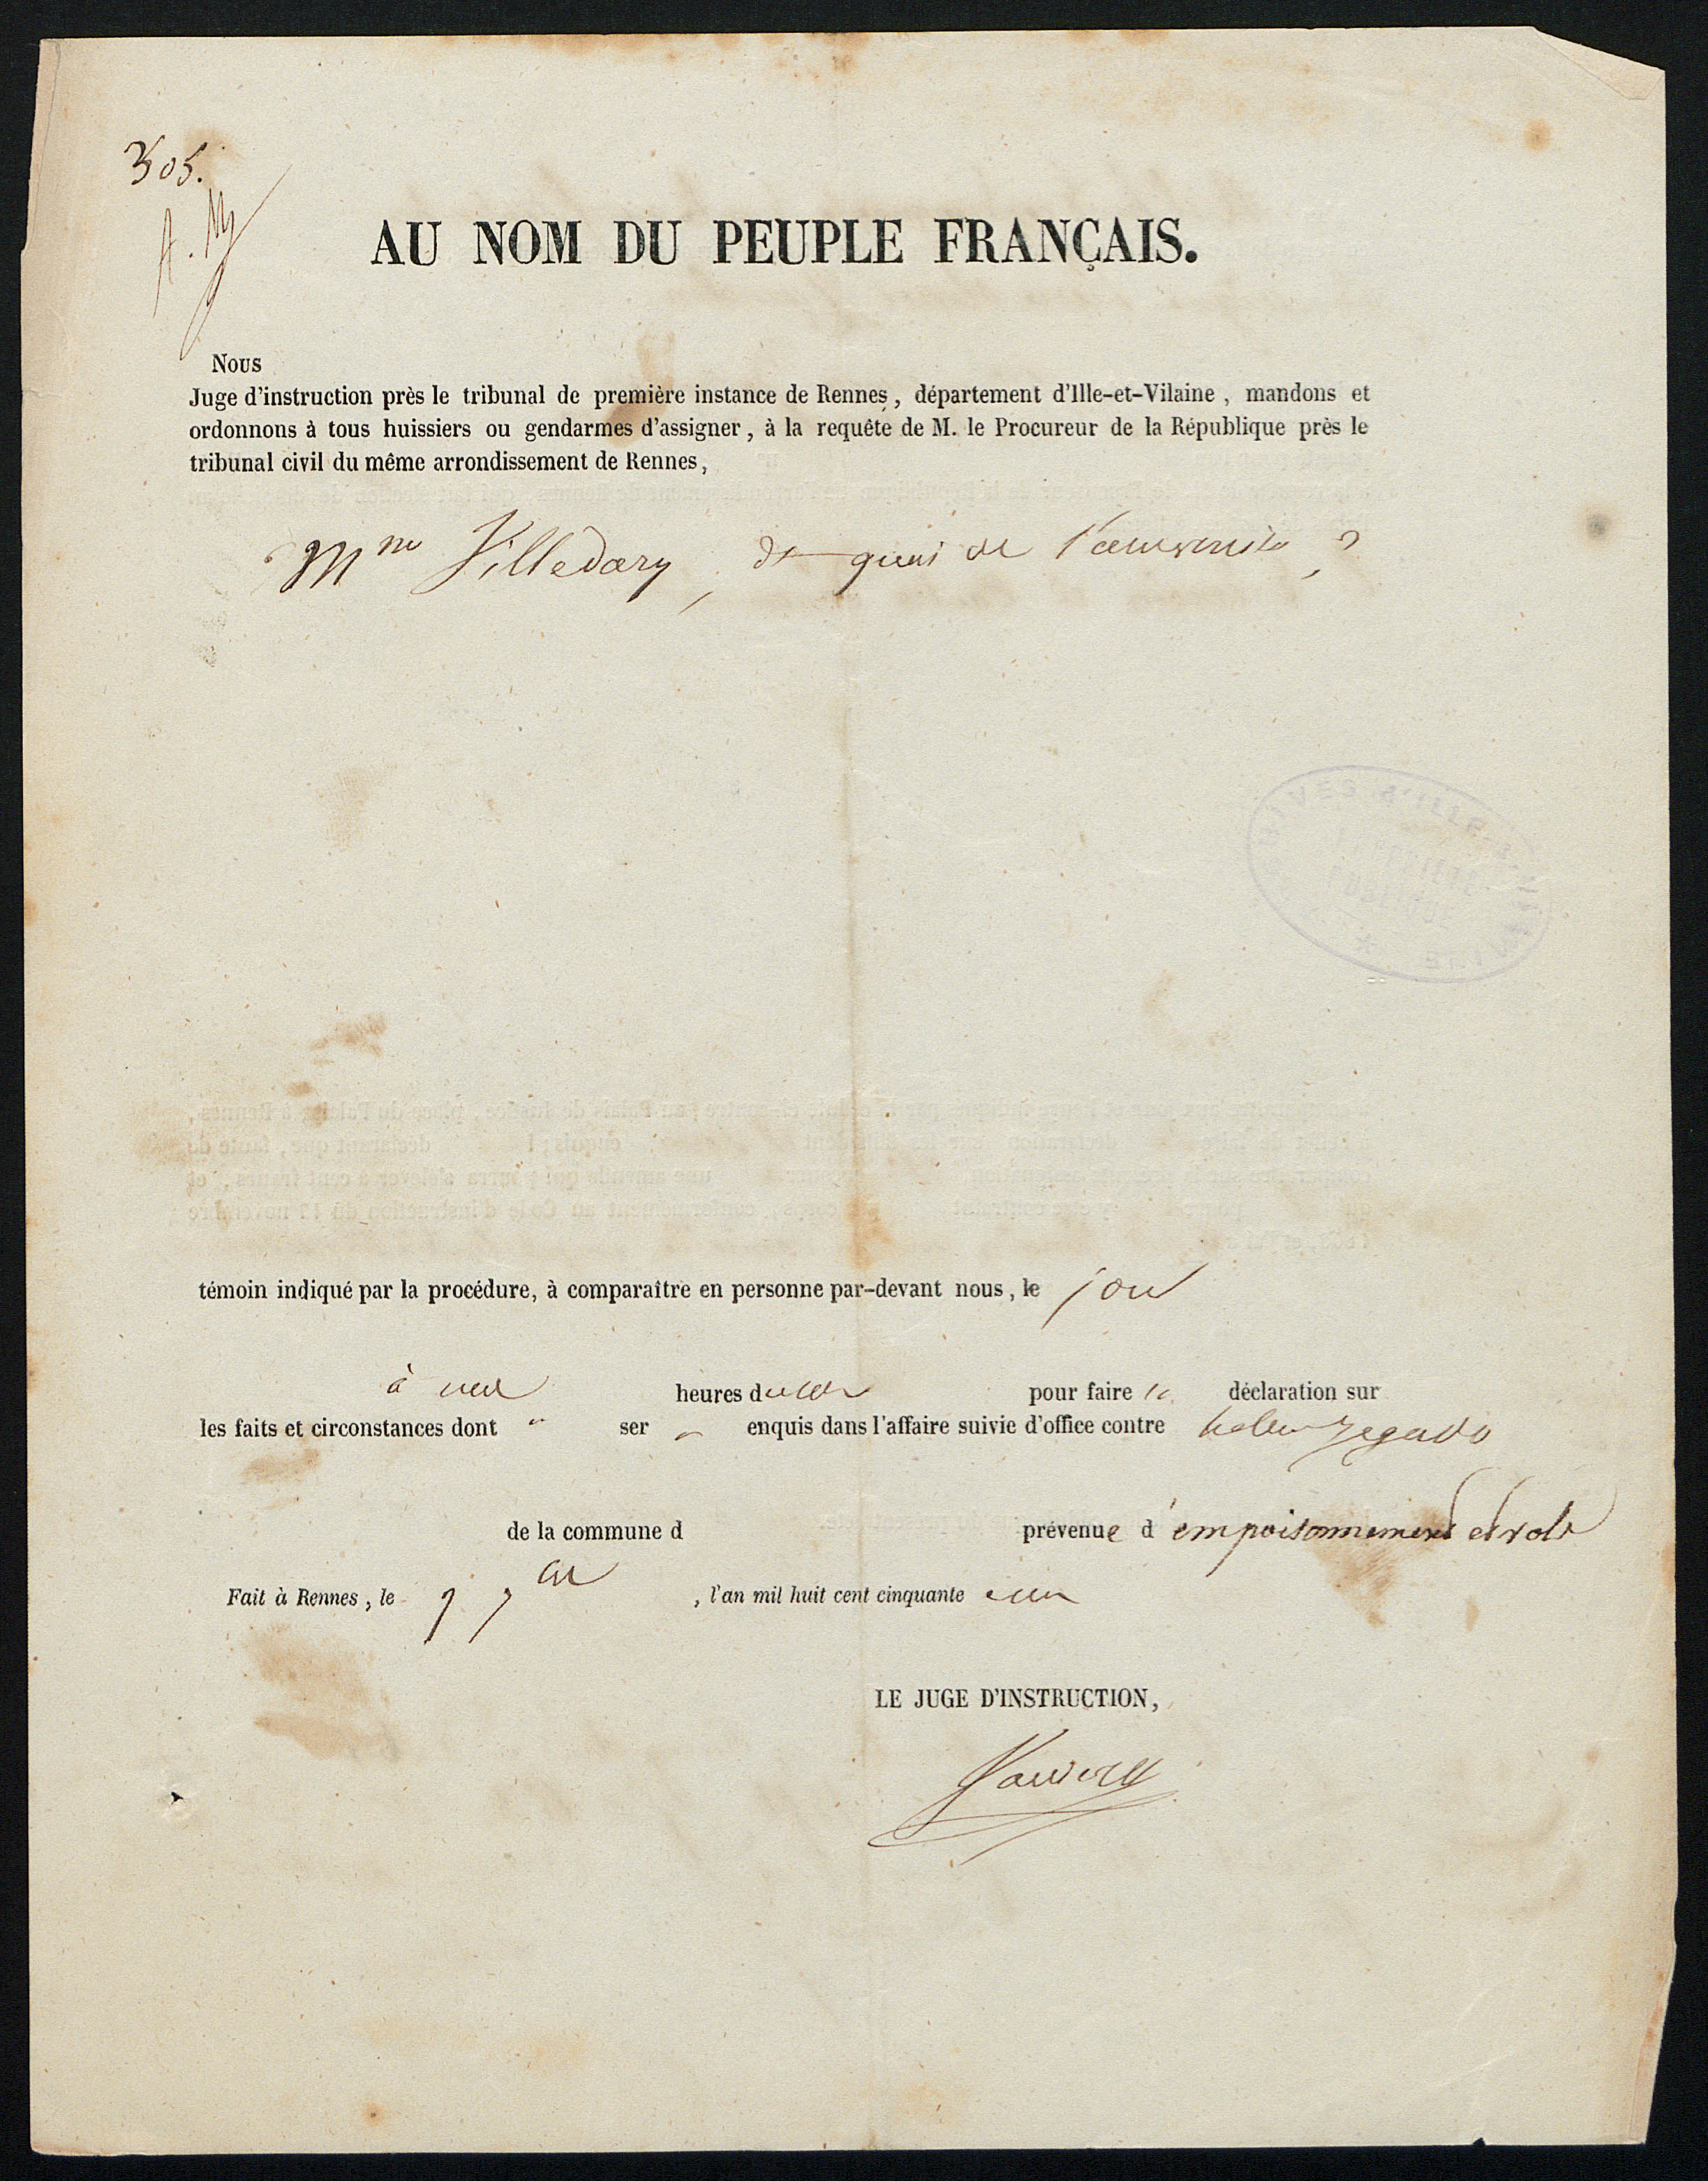 305.
AU NOM DU PEUPLE FRANÇAIS.
Nous
Juge d'instruction près le tribunal de première instance de Rennes, département d'Ille-et-Vilaine, mandons et
ordonnons à tous huissiers ou gendarmes d'assigner, à la requête de M. le Procureur de la République près le
tribunal civil du même arrondissement de Rennes,
Mme Villedary, quai de l'université
témoin indiqué par la procédure, à comparaître en personne par-devant nous, le
à heures du pour faire sa déclaration sur
les faits et circonstances dont ser enquis dans l'affaire suivie d'office contre helene Jegado
de la commune d prévenue d'empoisonnement et vols
Fait à Rennes, le 7 , l'an mil huit cent cinquante un
LE JUGE D'INSTRUCTION,